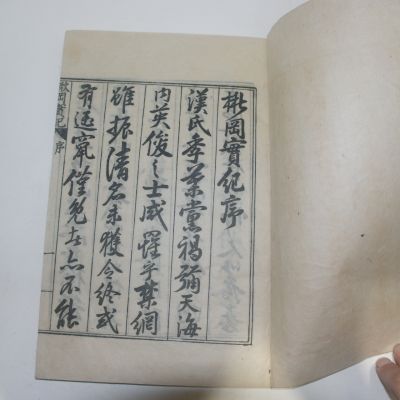 楸岡實紀序
漢氏季葉黨禍彌天海
內英俊之士咸罹乎禁網
雖振清名未獲令終或
有竄僅免者亦不能
岡實記 序